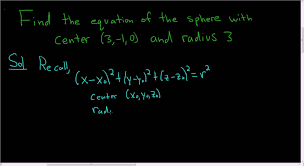 Find the equation of the sphere with
center (3,-1,0) and radius 3
Sol Recall,
(x-x₀)²+(y-y₀)²+(z-z₀)²=r²
center (x₀,y₀,z₀)
radi